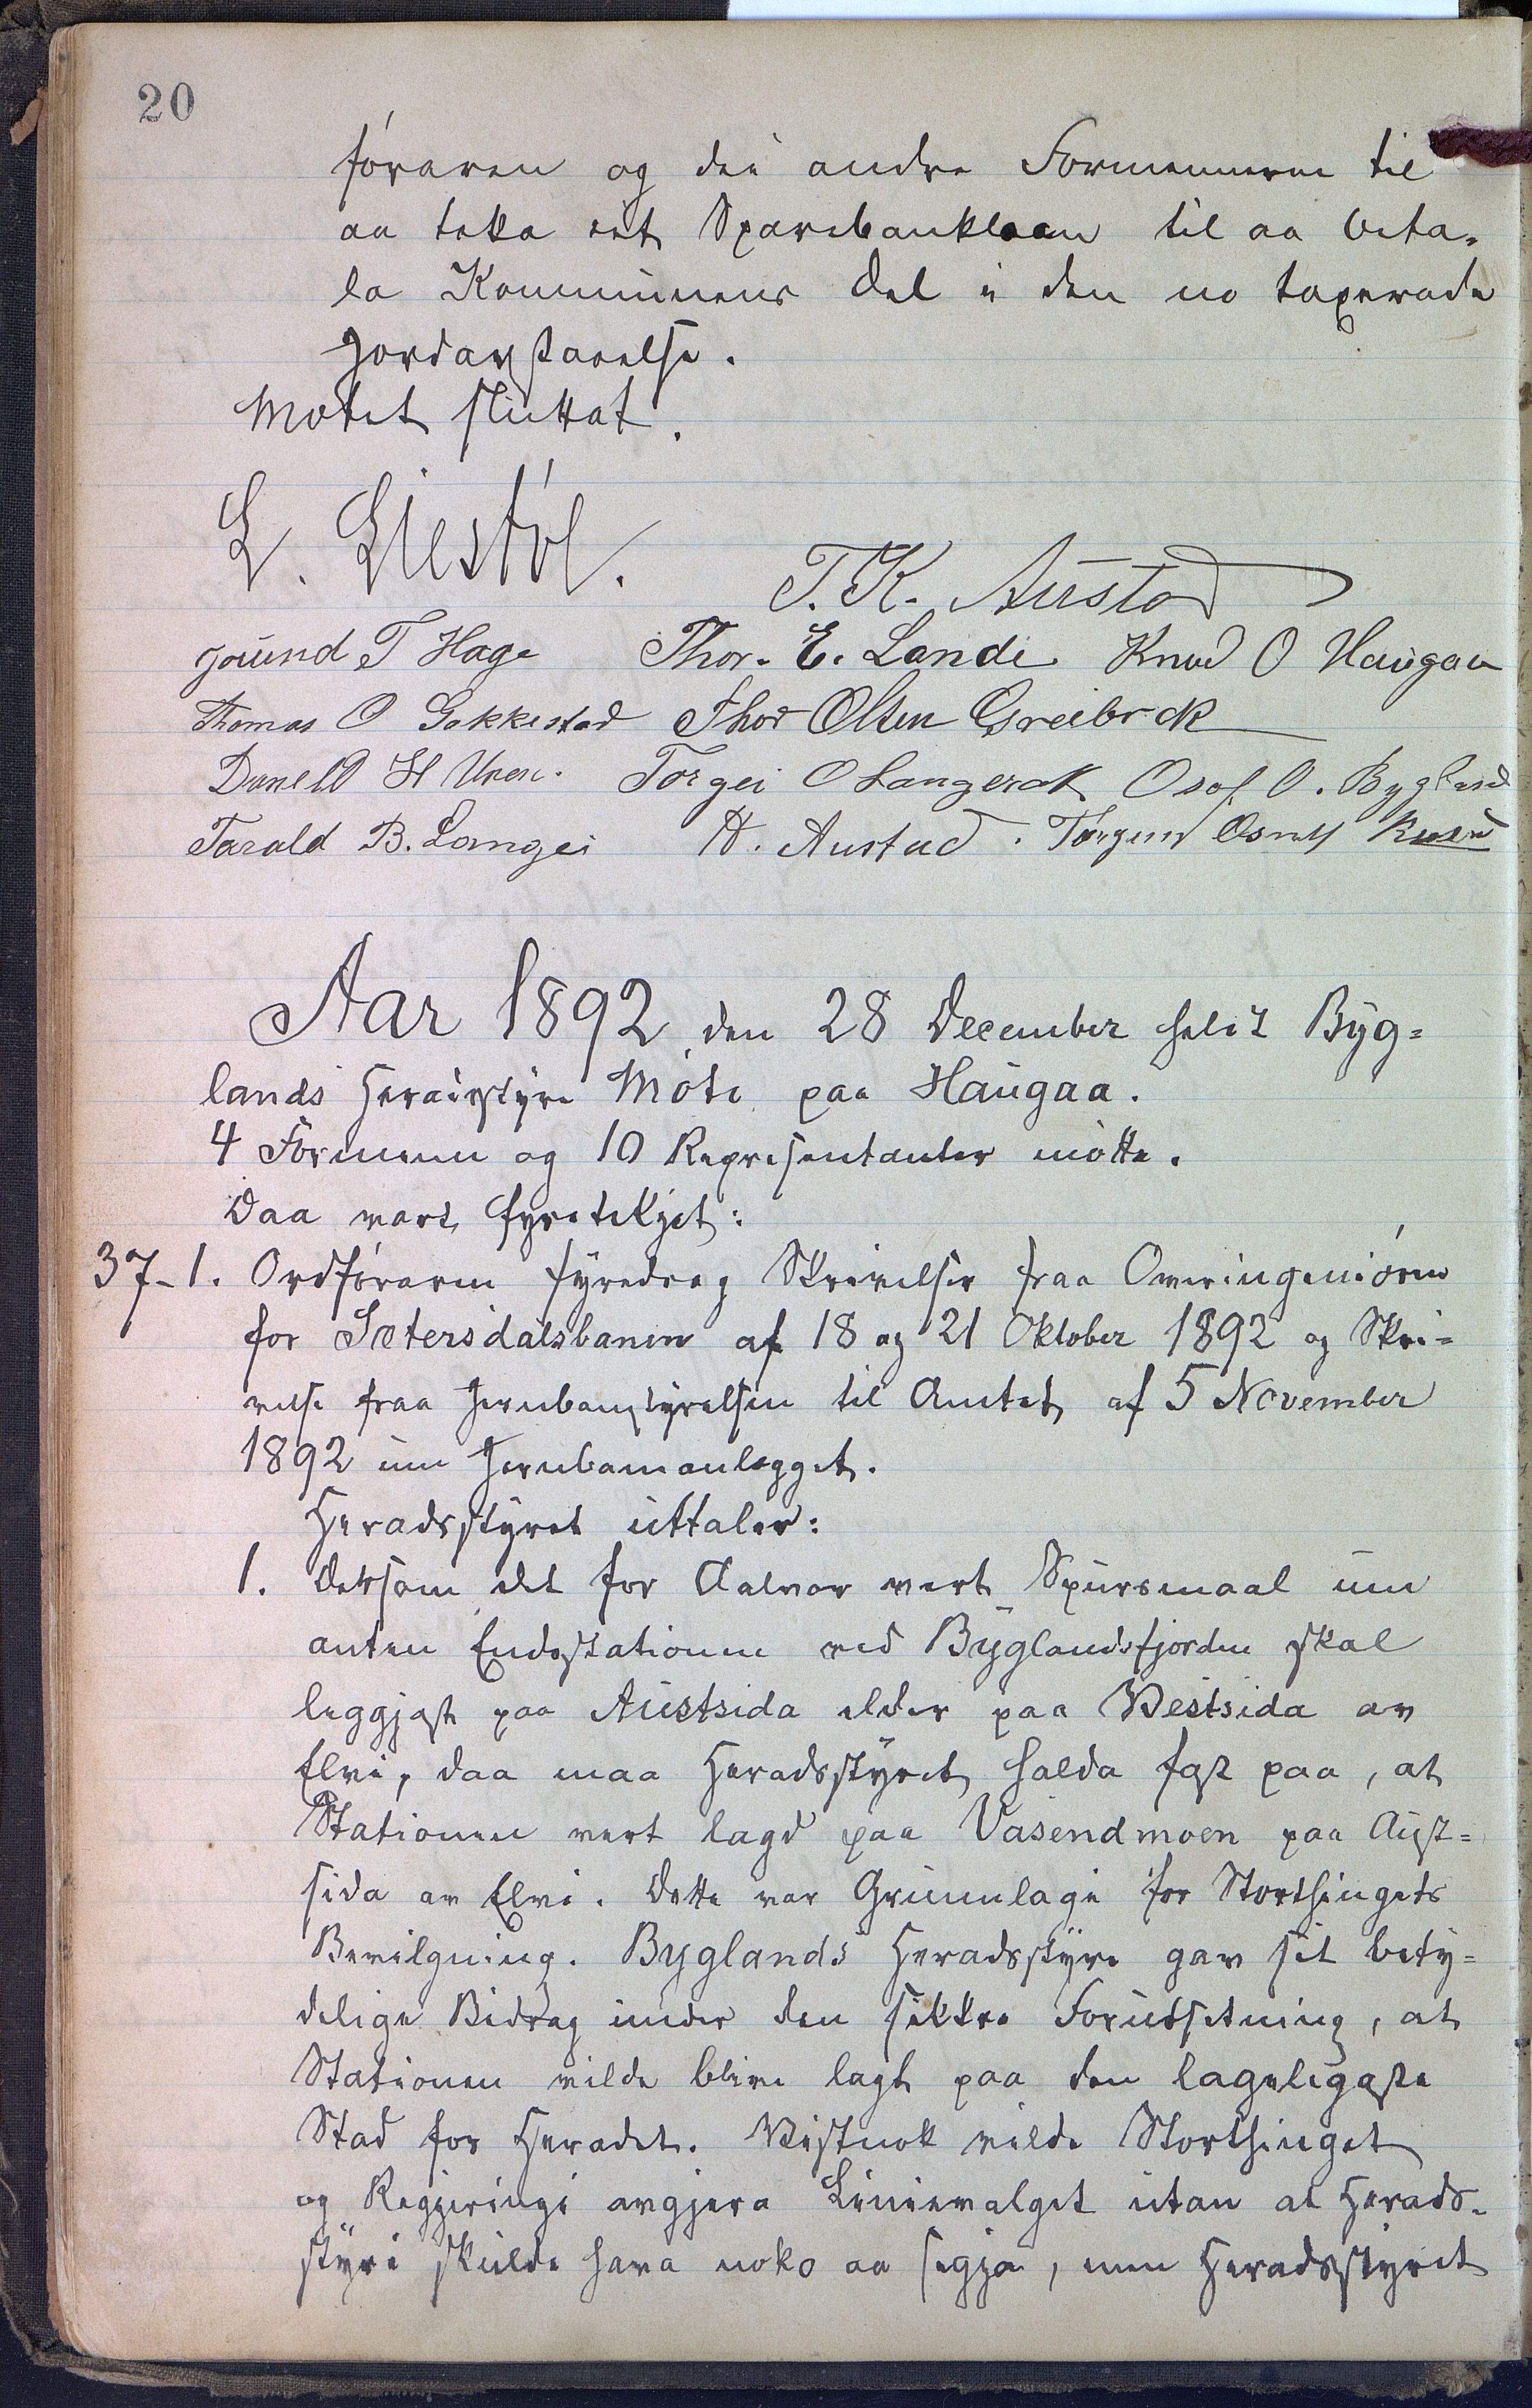 20
föraren og dei andre Formennerne til
aa taka eit Sparebanklaan til aa beta-
la Kommunens Del i den no taxerade
Jordavstaaelse.
Mötet sluttat.
L. Liestöl.
T. K. Austad
Gunund T Hage Thor. E. Lande Knud O Haugaa
Thomas O Gakkestad Thor Olsen Greibrok
Daniel H Uren. Torgei O Langerak Osof O. Bygland
Tarald B. Langei A. Austad. Törgen Osmds
Aar 1892 den 28 December helst Byg-
lands Heradsstyre Möte paa Haugaa.
4 Formenn og 10 Representanter mötte.
Daa vart fyretekjet:
37-1. Ordföraren fyredrog Skrivelser fraa Overingeniören
for Setersdalsbanen af 18 og 21 Oktober 1892 og Skri-
velse fraa Jernbanestyrelsen til Amtet af 5 November
1892 um Jernbaneanlegget.
Heradsstyret uttaler:
1. Dersom det for Aalvor vert Spursmaal um
anten Endestationen ved Byglandsfjorden skal
leggjast paa Austsida elder paa Vestsida av
Elvi, daa maa Heradsstyret halda fast paa, at
Stationen vert lagd paa Vasendmoen paa Aust-
sida av Elvi. Dette var Grunnlage for Stortingets
Bevilgning. Byglands Heradsstyre gav sit bety-
delige Bidrag under den sikkre Forutsetning, at
Stationen vilde blive lagt paa den lageligaste
Stad for Heradet. Vistnok vilde Stortinget
og Regjeringi avgjera Linievalget utan at Herads-
styre skulde hava noko aa segja, men Heradsstyret